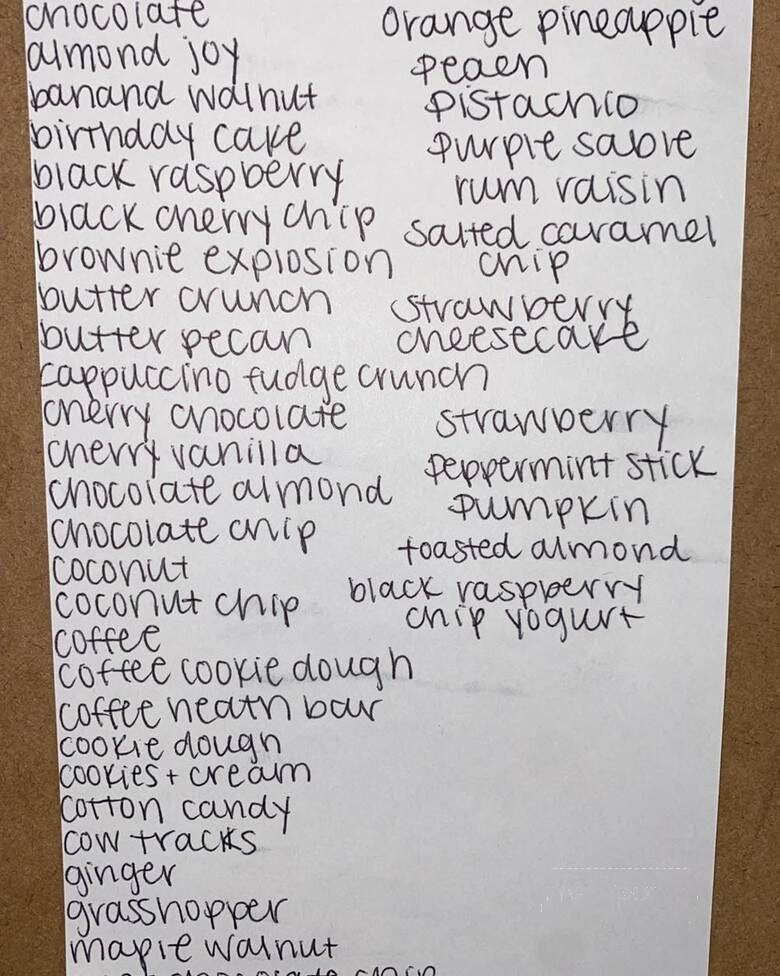 chocolate
almond joy
banana walnut
birthday cake
black raspberry
black cherry chip
brownie explosion
butter crunch
butter pecan
cappuccino fudge crunch
cherry chocolate
cherry vanilla
chocolate almond
chocolate chip
coconut
coconut chip
coffee
coffee cookie dough
coffee heath bar
cookie dough
cookies + cream
cotton candy
cow tracks
ginger
grasshopper
maple walnut
chocolate chip
orange pineapple
peach
pistachio
purple sable
rum raisin
salted caramel
chip
strawberry
cheesecake
strawberry
peppermint stick
pumpkin
toasted almond
black raspberry
chip yogurt